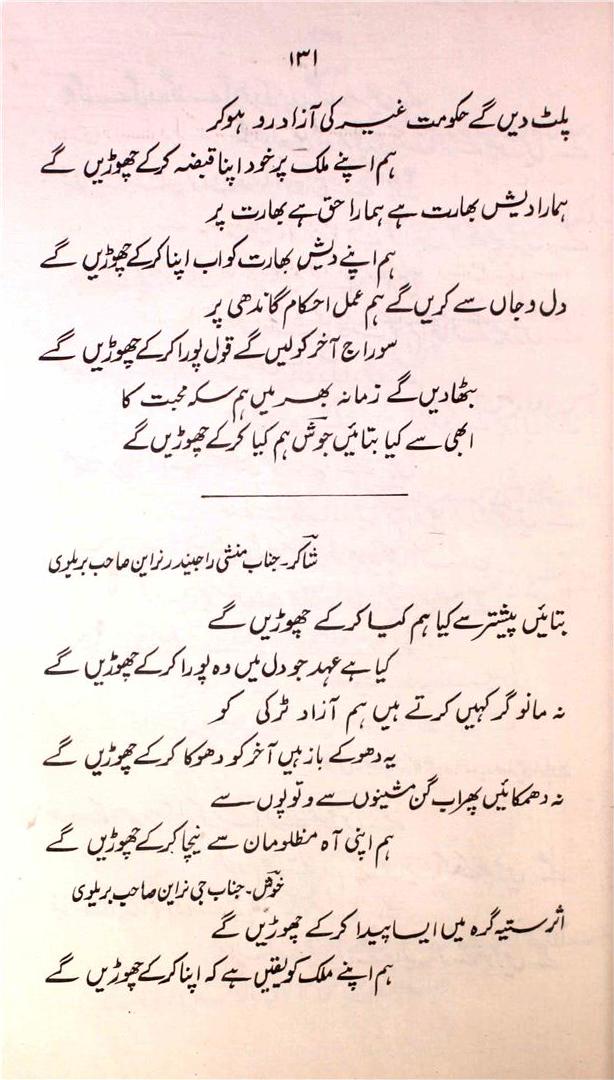 ۱۳۱
پلٹ دیں گے حکومت غیر کی آزاد رو ہو کر
ہم اپنے ملک پر خود اپنا قبضہ کر کے چھوڑیں گے
ہمارا دیش بھارت ہے ہمارا حق ہے بھارت پر
ہم اپنے دیش بھارت کو اب اپنا کر کے چھوڑیں گے
دل و جاں سے کریں گے ہم عمل احکام گاندھی پر
سوراج آخر کو لیں گے قول پورا کر کے چھوڑیں گے
بٹھا دیں گے زمانہ بھر میں ہم سکہ محبت کا
ابھی سے کیا بتائیں جوش ہم کیا کر کے چھوڑیں گے
شاکر۔ جناب منشی راجیندر نراین صاحب بریلوی
بتائیں پیشتر سے کیا ہم کیا کر کے چھوڑیں گے
کیا ہے عہد جو دل میں وہ پورا کر کے چھوڑیں گے
نہ مانو گر کہیں کرتے ہیں ہم آزاد ٹرکی کو
یہ دھوکے باز ہیں آخر کو دھوکا کر کے چھوڑیں گے
نہ دھمکائیں پھر اب گن مشینوں سے و توپوں سے
ہم اپنی آہ مظلومان سے نیچا کر کے چھوڑیں گے
خوش۔ جناب جی نراین صاحب بریلوی
اثر ستیہ گرہ میں ایسا پیدا کر کے چھوڑیں گے
ہم اپنے ملک کو یقیں ہے کہ اپنا کر کے چھوڑیں گے